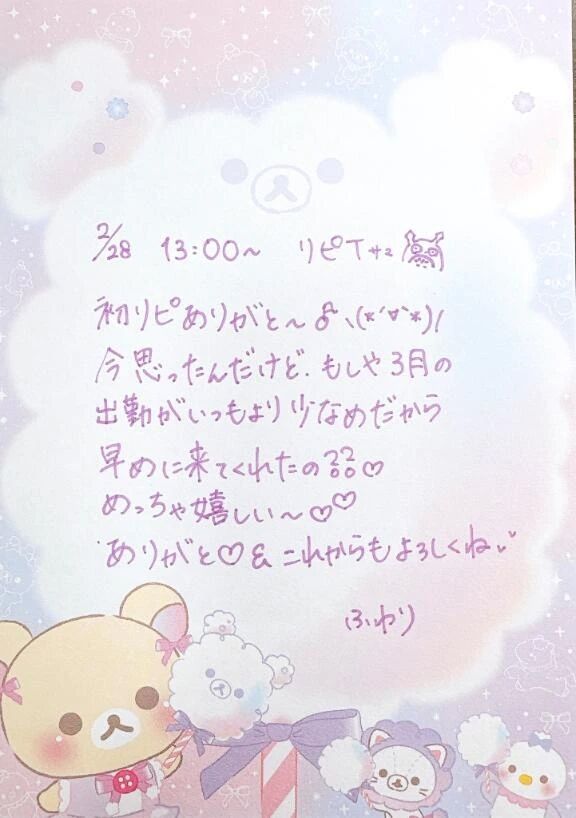 2/28 13:00〜 リピTサマ
初リピありがと〜♪ヽ(*´∀`*)ﾉ
今思ったんだけど、もしや3月の
出勤がいつもより少なめだから
早めに来てくれたの??♡
めっちゃ嬉しい〜♡♡
ありがと♡& これからもよろしくね♡
ふわり